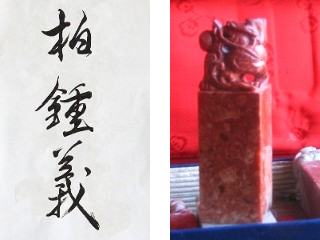 柏鍾義